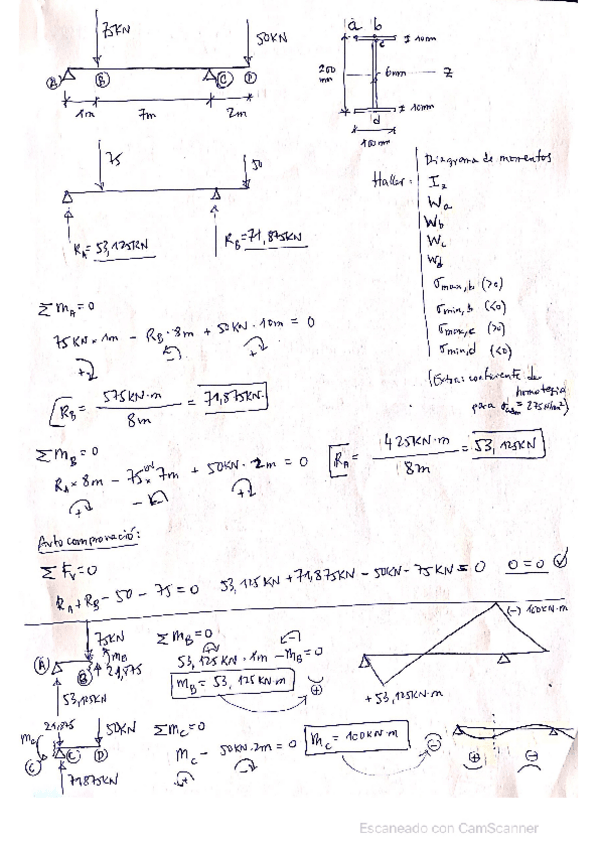 75KN
50KN
A B C D
1m 7m 2m
a b
c
d
I 10mm
200 mm
6mm
Z
I 10mm
100 mm
75
50
R_A = 53,125KN
R_B = 71,875KN
Hallar:
Diagrama de momentos
I_z
W_a
W_b
W_c
W_d
σmax,b (>0)
σmin,b (<0)
σmax,c (>0)
σmin,d (<0)
(Extra: coeficiente de
homotecia
para σadm = 275N/mm²)
ΣM_A=0
75KN×1m − R_B·8m + 50KN·10m = 0
R_B = 575KN·m / 8m = 71,875KN
ΣM_B=0
R_A×8m − 75KN×7m + 50KN·2m = 0
R_A = 425KN·m / 8m = 53,125KN
Autocomprovació:
ΣF_V=0
R_A+R_B−50−75=0 53,125KN+71,875KN−50KN−75KN=0 0=0
75KN
A
M_B
B
21,875
53,125KN
ΣM_B=0
53,125KN·1m − M_B=0
M_B = 53,125KN·m
(+)
(−) 100KN·m
+53,125KN·m
21,875
50KN
M_C
C
C D
71,875KN
ΣM_C=0
M_C − 50KN·2m = 0
M_C = 100KN·m
(−)
(+) (−)
Escaneado con CamScanner